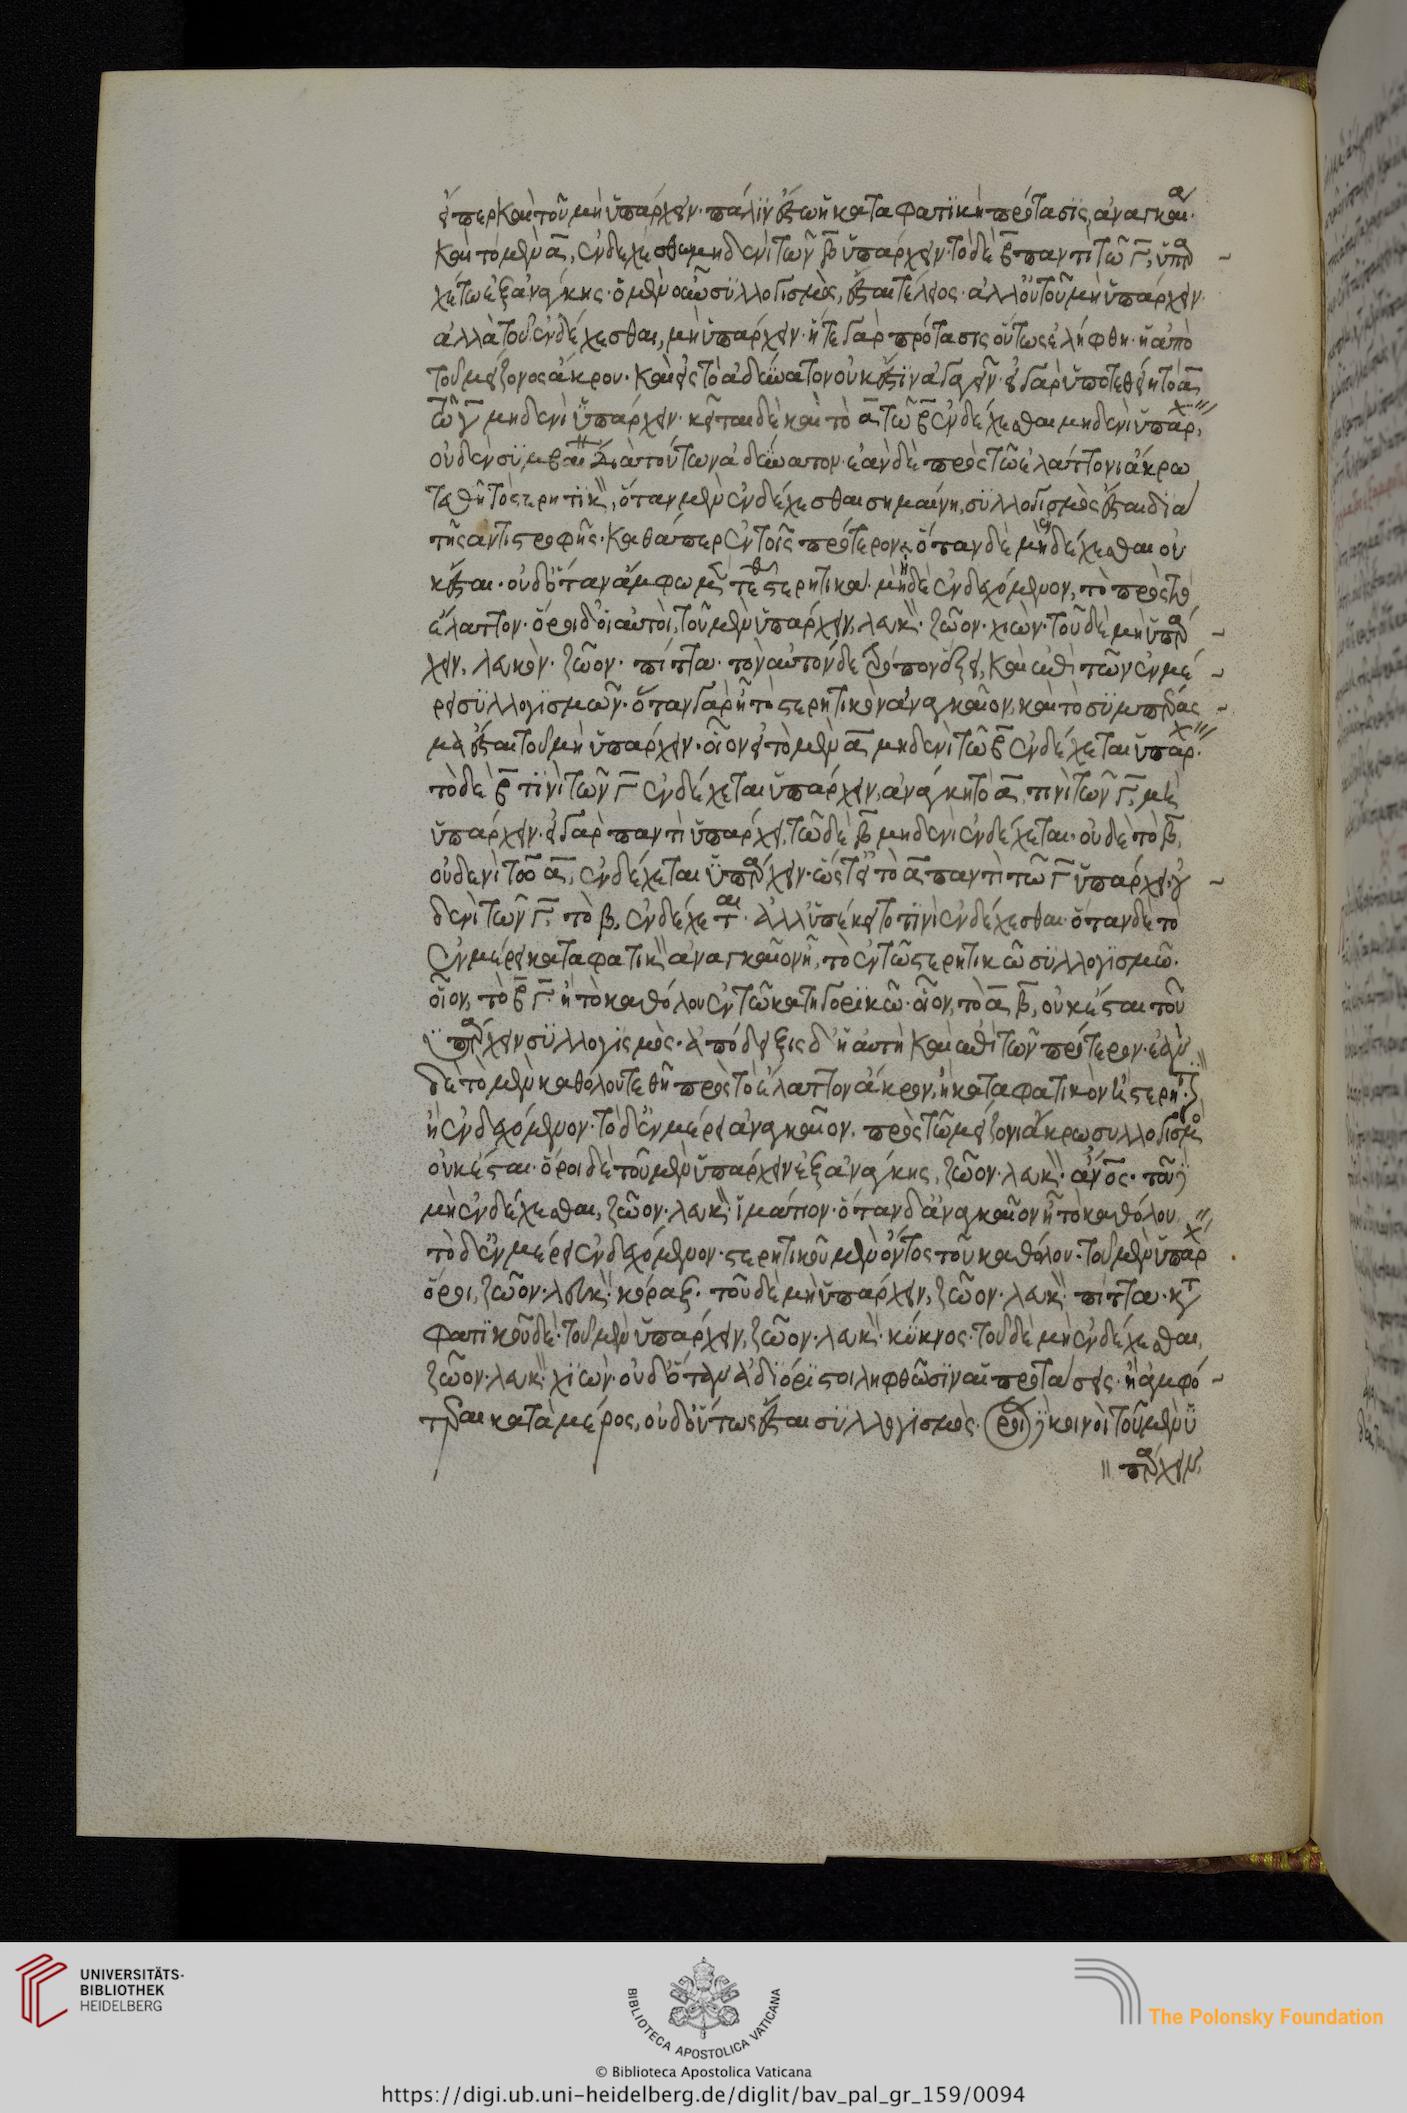 εἴπερ καὶ τοῦ μὴ ὑπάρχειν· πάλιν ἔστω ἡ καταφατικὴ πρότασις, ἀναγκαία·
καὶ τὸ μὲν α, ἐνδεχέσθω μηδενὶ τῶν β ὑπάρχειν· τὸ δὲ β παντὶ τῶ γ, ὑπαρ
χέτω ἐξ ἀνάγκης· ὁ μὲν οὖν συλλογισμὸς, ἔσται τέλειος· ἀλλ' οὐ τοῦ μὴ ὑπάρχειν·
ἀλλὰ τοῦ ἐνδέχεσθαι, μὴ ὑπάρχειν· ἥ τε γὰρ πρότασις οὕτως ἐλήφθη· ἡ ἀπὸ
τοῦ μείζονος ἄκρου· καὶ εἰς τὸ ἀδύνατον οὐκ ἔστιν ἀγαγεῖν· εἰ γὰρ ὑποτεθείη τὸ α
τῶ γ μηδενὶ ὑπάρχειν· κεῖται δὲ καὶ τὸ α τῶ β ἐνδέχεσθαι μηδενὶ ὑπάρχ
οὐδὲν συμβαί διὰ τούτων ἀδύνατον· ἐὰν δὲ πρὸς τῶ ἐλάττονι ἄκρω
τεθῆ τὸ στερητικ, ὅταν μὲν ἐνδέχεσθαι σημαίνη, συλλογισμὸς ἔσται διὰ
τῆς ἀντιστροφῆς· καθάπερ ἐν τοῖς πρότερον· ὅταν δὲ μὴ ἐνδέχεσθαι οὐ
κ ἔσται· οὐδ' ὅταν ἄμφω μὲν τεθῆ στερητικά· μὴ ἦ δὲ ἐνδεχόμενον, τὸ πρὸς τὸ
ἔλαττον· ὅροι δ' οἱ αὐτοὶ, τοῦ μὲν ὑπάρχειν, λευκ· ζῶον· χιών· τοῦ δὲ μὴ ὑπάρ
χειν, λευκὸν· ζῶον· πίττα· τὸν αὐτὸν δὲ τρόπον ἕξει, καὶ ἐπὶ τῶν ἐν μέ
ρει συλλογισμῶν· ὅταν γὰρ ἦ τὸ στερητικὸν ἀναγκαῖον, καὶ τὸ συμπέρας
μα ἔσται τοῦ μὴ ὑπάρχειν· οἷον εἰ τὸ μὲν α μηδενὶ τῶ β ἐνδέχεται ὑπάρχ·
τὸ δὲ β τινὶ τῶν γ ἐνδέχεται ὑπάρχειν, ἀνάγκη τὸ α, τινὶ τῶν γ, μὴ
ὑπάρχειν· εἰ γὰρ παντὶ ὑπάρχει, τῶ δὲ β μηδενὶ ἐνδέχεται· οὐδὲ τὸ β,
οὐδενὶ τῶ α, ἐνδέχεται ὑπάρχειν· ὥστ' εἰ τὸ α παντὶ τῶ γ ὑπάρχει· οὐ
δενὶ τῶν γ, τὸ β, ἐνδέχεται· ἀλλ' ὑπέκειτο τινὶ ἐνδέχεσθαι· ὅταν δὲ τὸ
ἐν μέρει καταφατικ ἀναγκαῖον ἦ, τὸ ἐν τῶ στερητικῶ συλλογισμῶ·
οἷον, τὸ β γ· ἢ τὸ καθόλου ἐν τῶ κατηγορικῶ· οἷον, τὸ α β, οὐκ ἔσται τοῦ
ὑπάρχειν συλλογισμὸς· ἀπόδειξις δ' ἡ αὐτὴ καὶ ἐπὶ τῶν πρότερον· ἐὰν
δὲ τὸ μὲν καθόλου τεθῆ πρὸς τὸ ἔλαττον ἄκρον, ἢ καταφατικὸν ἢ στερητ
ἢ ἐνδεχόμενον· τὸ δ' ἐν μέρει ἀναγκαῖον· πρὸς τῶ μείζονι ἄκρω συλλογισμὸς
οὐκ ἔσται· ὅροι δὲ τοῦ μὲν ὑπάρχειν ἐξ ἀνάγκης, ζῶον· λευκ· ἄνος· τοῦ δὲ
μὴ ἐνδέχεσθαι, ζῶον· λευκ· ἱμάτιον· ὅταν δ' ἀναγκαῖον ἦ τὸ καθόλου
τὸ δ' ἐν μέρει ἐνδεχόμενον· στερητικοῦ μὲν ὄντος τοῦ καθόλου· τοῦ μὲν ὑπάρχ
ὅροι, ζῶον· λευκ· κόραξ· τοῦ δὲ μὴ ὑπάρχειν, ζῶον· λευκ· πίττα· κατα
φατικοῦ δὲ· τοῦ μὲν ὑπάρχειν, ζῶον· λευκ· κύκνος· τοῦ δὲ μὴ ἐνδέχεσθαι,
ζῶον· λευκ· χιών· οὐδ' ὅταν ἀδιόριστοι ληφθῶσιν αἱ προτάσεις· ἢ ἀμφό
τεραι κατὰ μέρος, οὐδ' οὕτως ἔσται συλλογισμὸς· ὅροι δὲ κοινοὶ τοῦ μὲν ὑ
πάρχειν,
UNIVERSITÄTS-
BIBLIOTHEK
HEIDELBERG
BIBLIOTECA APOSTOLICA VATICANA
The Polonsky Foundation
© Biblioteca Apostolica Vaticana
https://digi.ub.uni-heidelberg.de/diglit/bav_pal_gr_159/0094